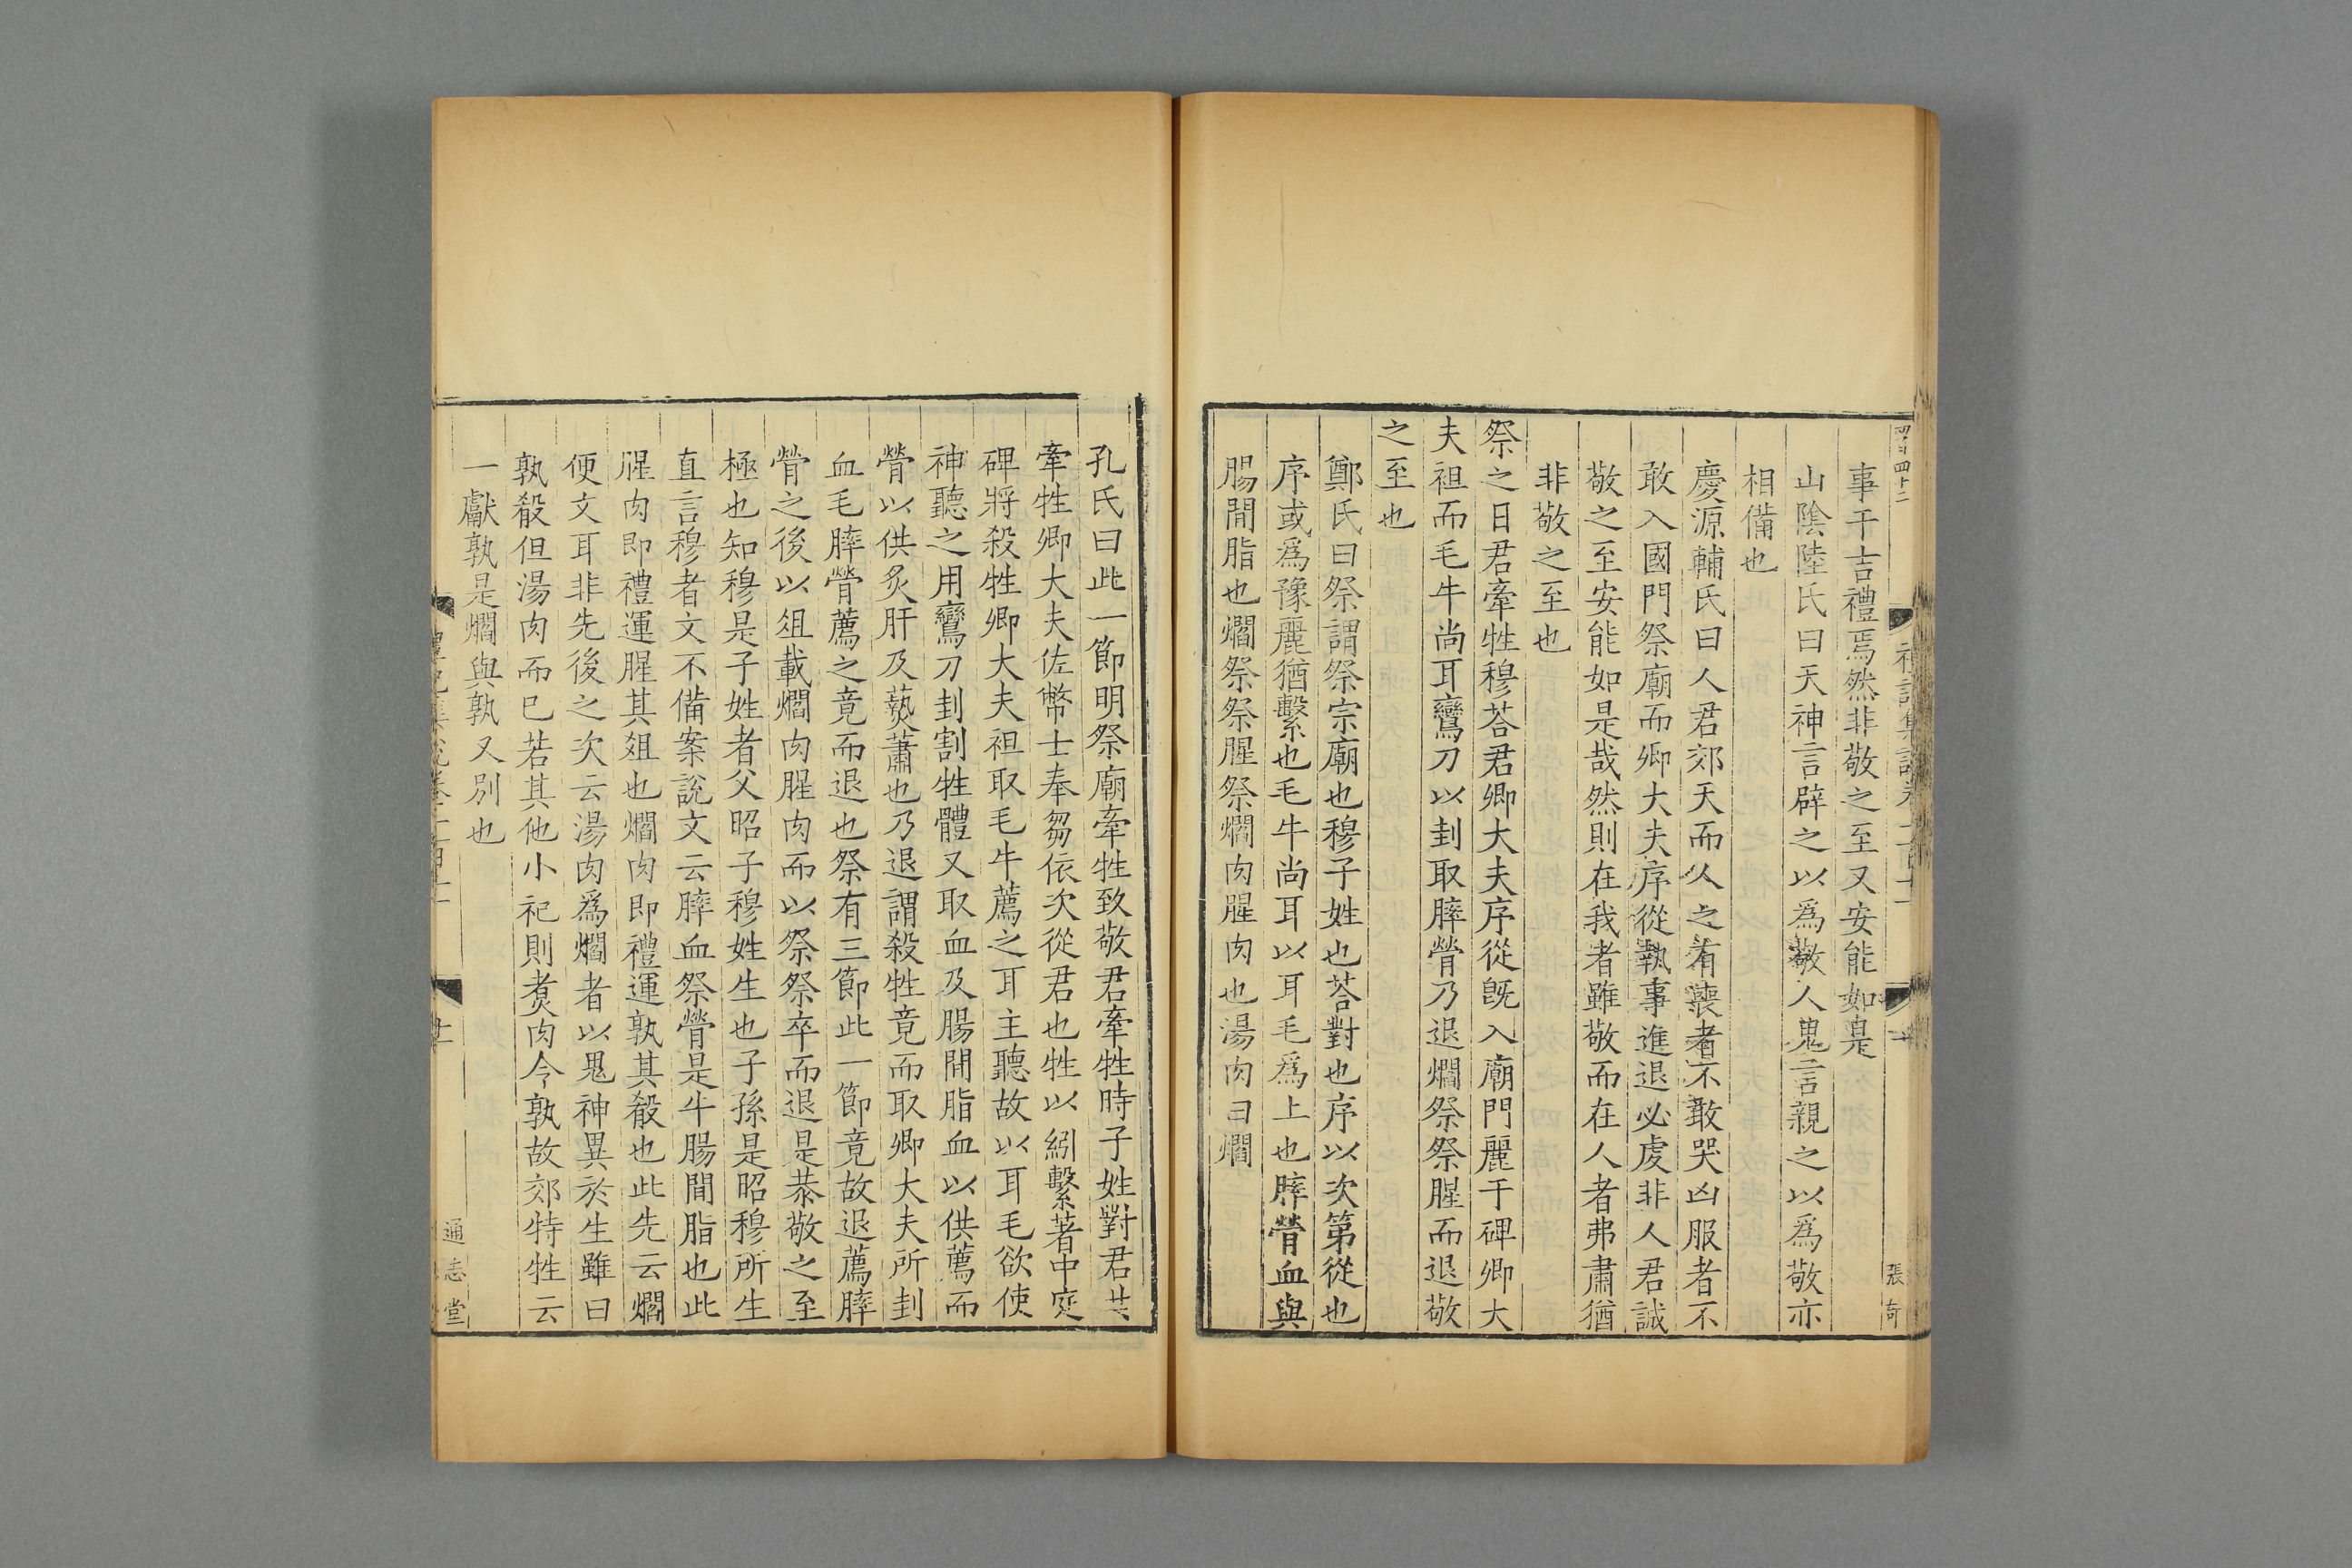 事干吉禮焉然非敬之至又安能如是
山陰陸氏曰天神言辟之以為敬人鬼言親之以為敬亦
相備也
慶源輔氏曰人君郊天而人之有喪者不敢哭凶服者不
敢入國門祭廟而卿大夫序從執事進退必虔非人君誠
敬之至安能如是哉然則在我者雖敬而在人者弗肅猶
非敬之至也
祭之日君牽牲穆荅君卿大夫序從旣入廟門麗于碑卿大
夫袒而毛牛尚耳鸞刀以刲取膟膋乃退爓祭祭腥而退敬
之至也
鄭氏曰祭謂祭宗廟也穆子姓也荅對也序以次第從也
序或爲豫麗猶繫也毛牛尚耳以耳毛爲上也膟膋血與
腸間脂也爓祭祭腥祭爓肉腥肉也湯肉曰爓
孔氏曰此一節明祭廟牽牲致敬君牽牲時子姓對君共
牽牲卿大夫佐幣士奉芻依次從君也牲以紖繫著中庭
碑將殺牲卿大夫袒取毛牛薦之耳主聽故以耳毛欲使
神聽之用鸞刀刲割牲體又取血及腸間脂血以供薦而
膋以供炙肝及爇蕭也乃退謂殺牲竟而取卿大夫所刲
血毛膟膋薦之竟而退也祭有三節此一節竟故退薦膟
膋之後以俎載爓肉腥肉而以祭祭卒而退是恭敬之至
極也知穆是子姓者父昭子穆姓生也子孫是昭穆所生
直言穆者文不備案說文云膟血祭膋是牛腸間脂也此
腥肉即禮運腥其俎也爓肉即禮運孰其殽也此先云爓
便文耳非先後之次云湯肉爲爓者以鬼神異於生雖曰
孰殽但湯肉而已若其他小祀則煑肉令孰故郊特牲云
一獻孰是爓與孰又別也
通志堂
張奇